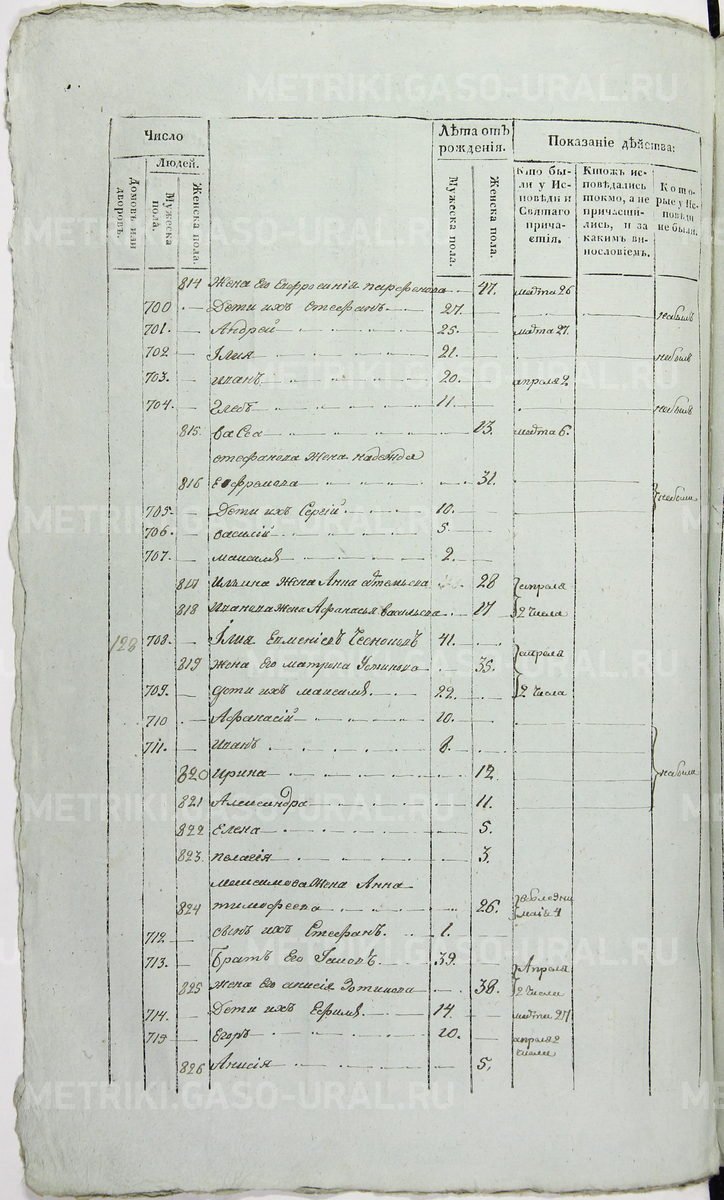 METRIKI.GASO-URAL.RU
Число
Лѣта отъ рожденія.
Показаніе дѣйства:
Людей.
Домовъ или дворовъ.
Мужеска пола.
Женска пола.
Мужеска пола.
Женска пола.
Кто были у Исповѣди и Святаго причастія.
Ктожъ исповѣдались токмо, а не причастились, и за какимъ винословіемъ.
Которые у Исповѣди не были.
814 Жена Его Евфросинія парфенова 47.
700 Дети ихъ Стефанъ 27. небылъ
701. Андрей 25. марта 27.
702 Илия 21. небылъ
703. иванъ 20. апреля 2
704. Глебъ 11. небылъ
815. васса 13. марта 6.
стефанова жена надежда
816 Ефремова 31. небыли
705. Дети ихъ Сергій 10.
706. василій 5.
707. максимъ 2.
817 Ильина жена Анна 28 апреля
818 Иванова жена Афанасья васильева 17 2 числа
128 708. Илия 41. апреля
819 жена Его матрена Устинова 35.
709. дети ихъ максимъ 22. 2 числа
710 Афанасій 10.
711. иванъ 8.
820 ирина 12 небыли
821 Александра 11.
822 Елена 5.
823. пелагія 3.
максимова жена Анна
824 тимофеева 26. маія 4
712. сынъ ихъ Стефанъ. 1.
713. Братъ Его 39. Апреля
825 жена Его анисія 38. 2 числа
714. Дети ихъ Ефимъ 14. марта 27
715 Егоръ 10. апреля 2 числа
826 Анисія 5.